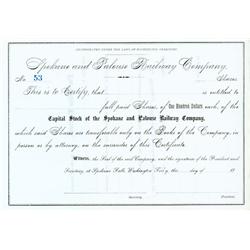 INCORPORATED UNDER THE LAWS OF WASHINGTON TERRITORY.
Spokane and Palouse Railway Company.
No. 53 Shares
This is to Certify, that is entitled to
full paid Shares, of One Hundred Dollars each, of the
Capital Stock of the Spokane and Palouse Railway Company,
which said Shares are transferable only on the Books of the Company, in
person or by attorney, on the surrender of this Certificate.
Witness, the Seal of the said Company, and the signatures of the President and
Secretary, at Spokane Falls, Washington Ter'y, the day of 18